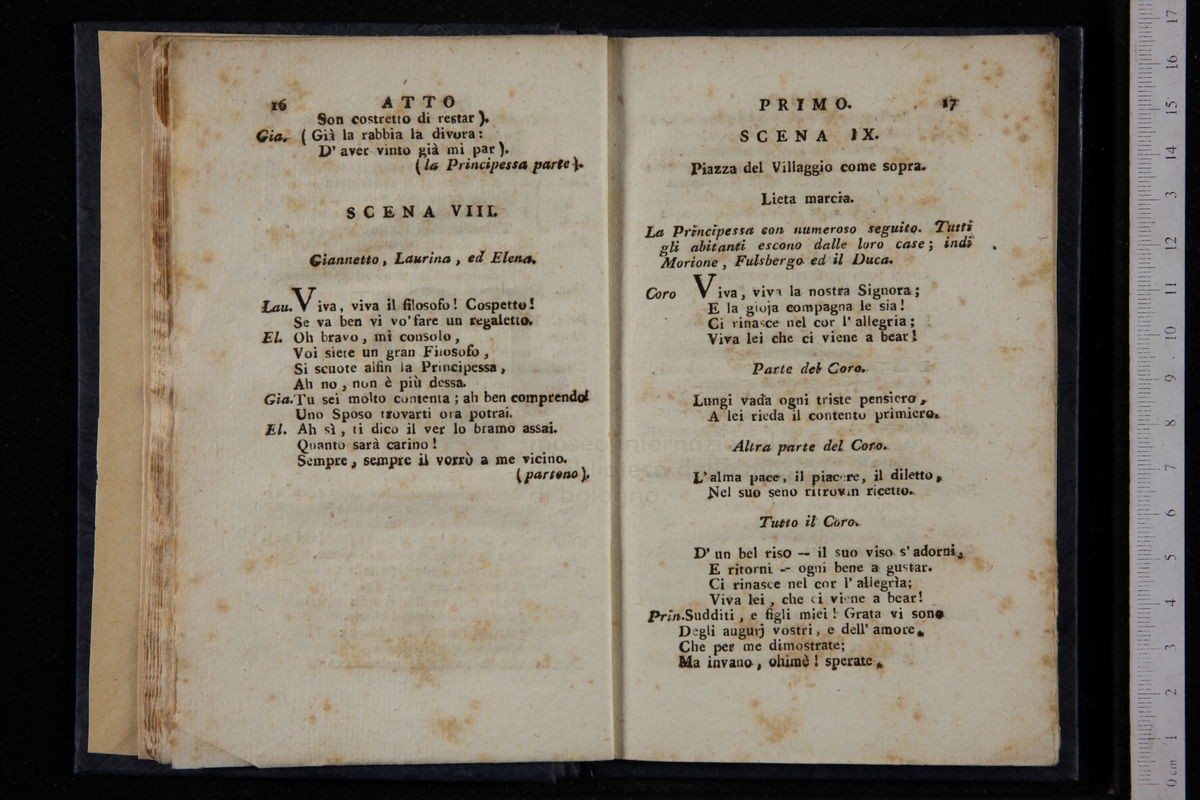 16 ATTO
Son costretto di restar ).
Gia. ( Già la rabbia la divora:
D' aver vinto già mi par ).
( la Principessa parte ).
SCENA VIII.
Giannetto, Laurina, ed Elena.
Lau. Viva, viva il filosofo! Cospetto!
Se va ben vi vo' fare un regaletto.
El. Oh bravo, mi consolo,
Voi siete un gran Filosofo,
Si scuote alfin la Principessa,
Ah no, non è più dessa.
Gia. Tu sei molto contenta; ah ben comprendo!
Uno Sposo trovarti ora potrai.
El. Ah sì, ti dico il ver lo bramo assai.
Quanto sarà carino!
Sempre, sempre il vorrò a me vicino.
( partono ).
PRIMO. 17
SCENA IX.
Piazza del Villaggio come sopra.
Lieta marcia.
La Principessa con numeroso seguito. Tutti
gli abitanti escono dalle loro case; indi
Morione, Fulsbergo ed il Duca.
Coro Viva, viva la nostra Signora;
E la gioja compagna le sia!
Ci rinasce nel cor l' allegria;
Viva lei che ci viene a bear!
Parte del Coro.
Lungi vada ogni triste pensiero,
A lei rieda il contento primiero.
Altra parte del Coro.
L' alma pace, il piacere, il diletto,
Nel suo seno ritrovin ricetto.
Tutto il Coro.
D' un bel riso -- il suo viso s' adorni,
E ritorni -- ogni bene a gustar.
Ci rinasce nel cor l' allegria;
Viva lei, che ci viene a bear!
Prin. Sudditi, e figli miei! Grata vi sono
Degli augurj vostri, e dell' amore,
Che per me dimostrate;
Ma invano, ohimè! sperate,
0 cm 1 2 3 4 5 6 7 8 9 10 11 12 13 14 15 16 17
di bologna